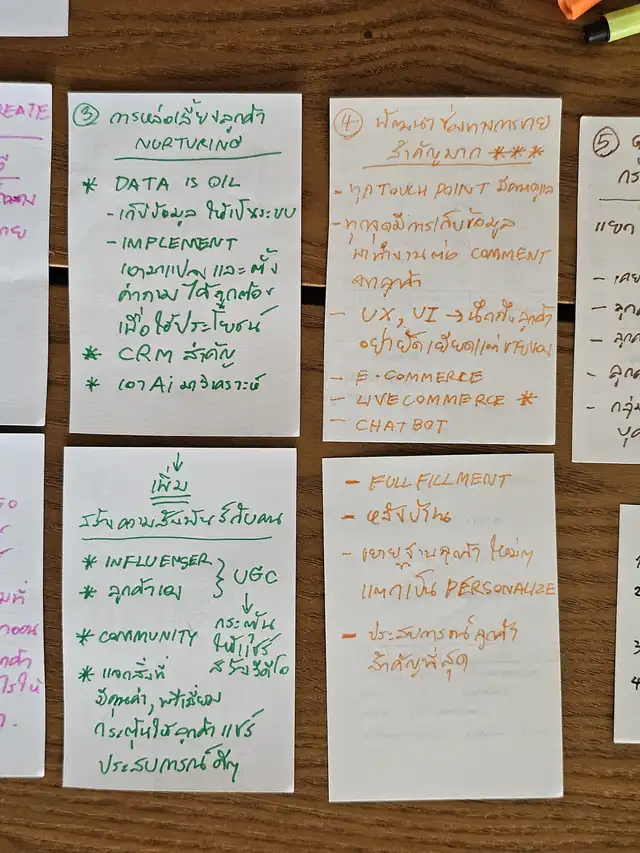 ③ การหล่อเลี้ยงลูกค้า
NURTURING
* DATA IS OIL
- เก็บข้อมูล ให้เป็นระบบ
- IMPLEMENT
เอามาแปลง และ ตั้ง
คำถาม ได้ถูกต้อง
เพื่อใช้ประโยชน์
* CRM สำคัญ
* เอา Ai มาวิเคราะห์
↓
เพิ่ม
สร้างความสัมพันธ์กับคน
* INFLUENSER } UGC
* ลูกค้าเอง
↓
กระตุ้น
ให้แชร์
สร้างวีดีโอ
* COMMUNITY
* แจกสิ่งที่
มีคุณค่า, พรีเมี่ยม
กระตุ้นให้ลูกค้าแชร์
ประสบการณ์ดีๆ
④ พัฒนาช่องทางการขาย
สำคัญมาก ***
- ทุก TOUCH POINT มีคนดูแล
- ทุกจุดมีการเก็บข้อมูล
มาทำงานต่อ COMMENT
จากลูกค้า
- UX, UI → นึกถึงลูกค้า
อย่ายัดเยียดแต่ขายของ
- E-COMMERCE
- LIVECOMMERCE *
- CHATBOT
- FULLFILLMENT
- หลังบ้าน
- ขยายฐานลูกค้าใหม่ๆ
แตกเป็น PERSONALIZE
- ประสบการณ์ลูกค้า
สำคัญที่สุด
REATE
⑤
แยก
- ลูกค
- ลูกค
- ลูกค
- กลุ่ม
2
3
4